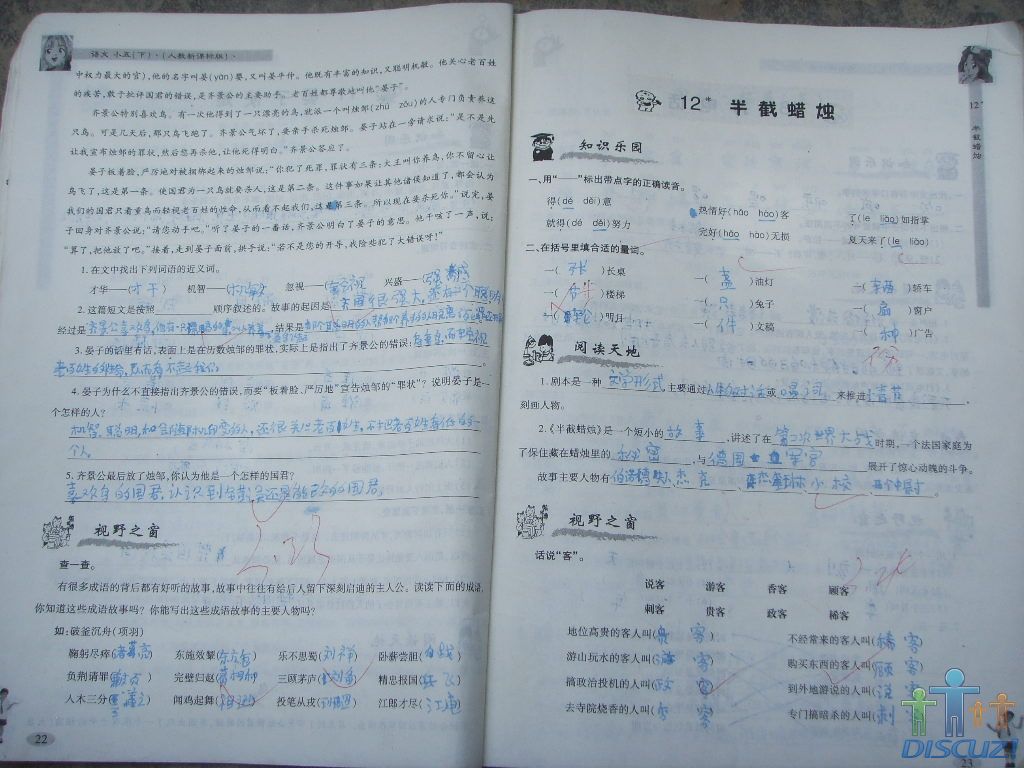 语文 小五(下)·(人教新课标版)·
中权力最大的官),他的名字叫晏(yàn)婴,又叫晏平仲。他既有丰富的知识,又聪明机敏。他关心老百姓
的疾苦,敢于批评国君的错误,是齐景公的主要助手。老百姓都尊敬地叫他“晏子”。
齐景公特别喜欢鸟。有一次他得到了一只漂亮的鸟,就派一个叫烛邹(zhú zōu)的人专门负责养这
只鸟。可是几天后,那只鸟飞跑了。齐景公气坏了,要亲手杀死烛邹。晏子站在一旁请求说:“是不是先
让我宣布烛邹的罪状,然后您再杀他,让他死得明白。”齐景公答应了。
晏子板着脸,严厉地对被捆绑起来的烛邹说:“你犯了死罪,罪状有三条:大王叫你养鸟,你不留心让
鸟飞了,这是第一条。使国君为一只鸟就要杀人,这是第二条。这件事如果让其他诸侯知道了,都会认为
我们的国君只看重鸟而轻视老百姓的性命,从而看不起我们,这是第三条。所以现在要杀死你。”说完,晏
子回身对齐景公说:“请您动手吧。”听了晏子的一番话,齐景公明白了晏子的意思。他干咳了一声,说:
“算了,把他放了吧。”接着,走到晏子面前,拱手说:“若不是您的开导,我险些犯了大错误呀!”
1. 在文中找出下列词语的近义词。
才华——(才干) 机智——(机敏) 忽视——(轻视) 兴盛——(强盛)
2. 这篇短文是按照 顺序叙述的。故事的起因是
经过是 ,结果是
3. 晏子的话里有话,表面上是在历数烛邹的罪状,实际上是指出了齐景公的错误:看重鸟而轻视
老百姓的性命,从而看不起我们
4. 晏子为什么不直接指出齐景公的错误,而要“板着脸、严厉地”宣告烛邹的“罪状”?说明晏子是一
个怎样的人?
机智,聪明,和会随机应变的人,还很关心老百姓
个人。
5. 齐景公最后放了烛邹,你认为他是一个怎样的国君?
喜欢鸟的国君,认识到错误
视野之窗
查一查。
有很多成语的背后都有好听的故事,故事中往往有给后人留下深刻启迪的主人公。读读下面的成语,
你知道这些成语故事吗?你能写出这些成语故事的主要人物吗?
如:破釜沉舟(项羽)
鞠躬尽瘁(诸葛亮) 东施效颦(东方台) 乐不思蜀(刘禅) 卧薪尝胆( )
负荆请罪( ) 完璧归赵(蔺相如) 三顾茅庐(刘备) 精忠报国(岳飞)
入木三分( ) 闻鸡起舞(祖逖) 投笔从戎( ) 江郎才尽(江淹)
22
12* 半截蜡烛
知识乐园
一、用“——”标出带点字的正确读音。
得(dé děi)意 热情好(hǎo hào)客 了(le liǎo)如指掌
就得(dé děi)努力 完好(hǎo hào)无损 夏天来了(le liǎo)
二、在括号里填合适的量词。
一(张)长桌 一(盏)油灯 一(辆)轿车
一( )楼梯 一(只)兔子 一(扇)窗户
一(轮)明月 一(件)文稿 一(种)广告
阅读天地
1. 剧本是一种 文学形式 主要通过 人物对话 或 唱词 来推进 情节
刻画人物。
2. 《半截蜡烛》是一个短小的 故事 ,讲述了在 第二次世界大战 时期,一个法国家庭为
了保住藏在蜡烛里的 秘密 ,与 德国 军官 展开了惊心动魄的斗争。
故事主要人物有 伯诺德夫人 杰克
视野之窗
话说“客”。
说客 游客 香客 顾客
刺客 贵客 政客 稀客
地位高贵的客人叫(贵客) 不经常来的客人叫(稀客)
游山玩水的客人叫(游客) 购买东西的客人叫(顾客)
搞政治投机的人叫(政客) 到外地游说的人叫(说客)
去寺院烧香的人叫(香客) 专门搞暗杀的人叫(刺客)
12*
半截蜡烛
23
DISCUZ!